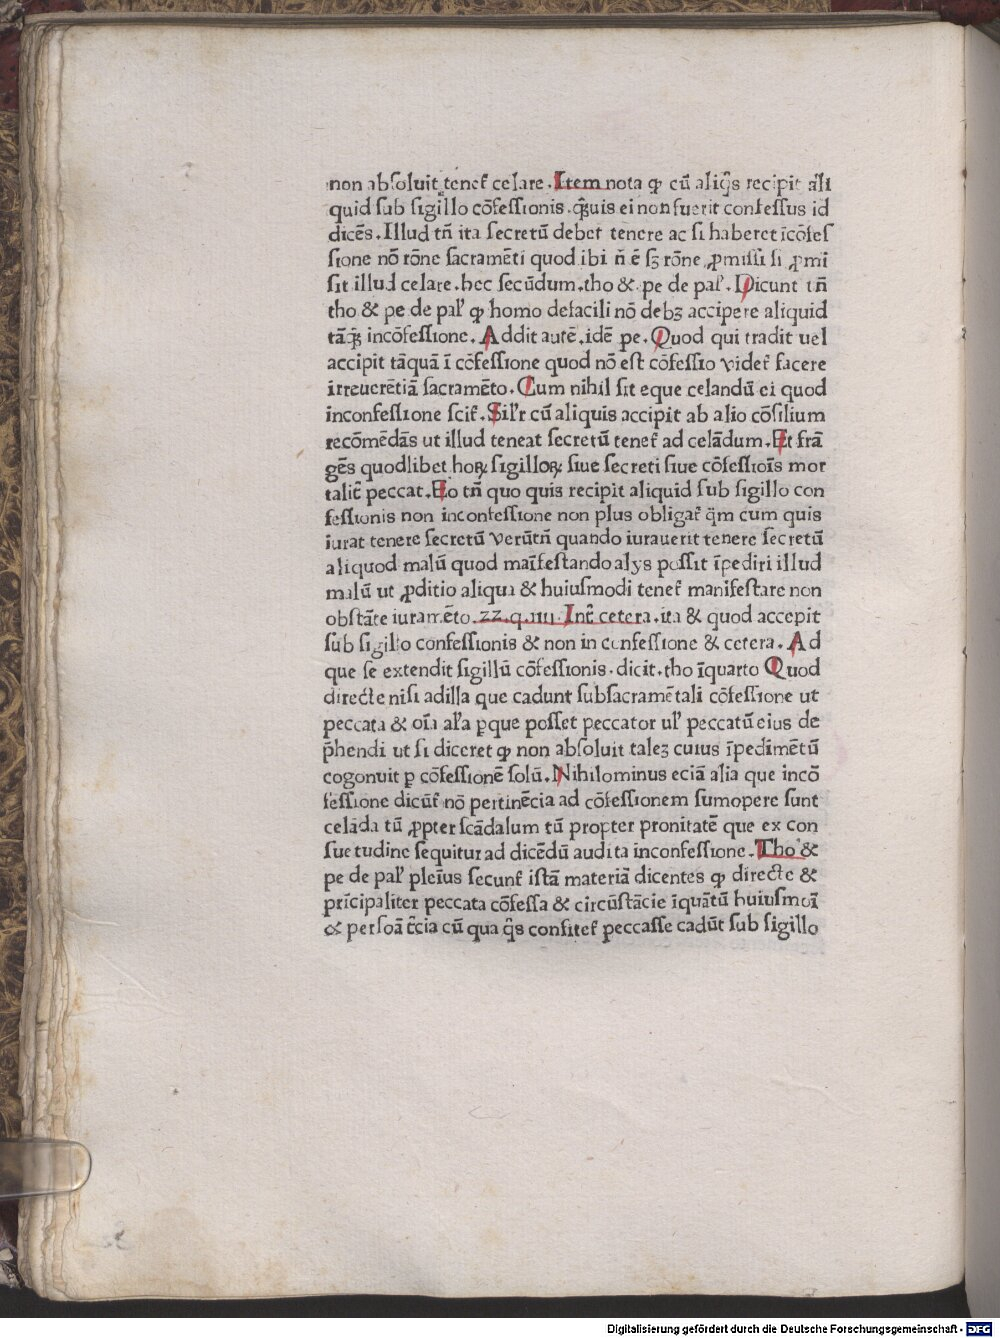 non absoluit tenet᷒ celare. Item nota ꝙ cū aliq̄s recipit ali
quid sub sigillo cōfessionis. q̄ꝫuis ei non fuerit confessus id
dicēs. Illud tn̄ ita secretū debet tenere ac si haberet īcōfes
sione nō rōne sacramēti quod ibi n̄ ē sꝫ rōne ꝓmissi si ꝓmi
sit illud celare. hec secūdum. tho & pe de pal᷒. Dicunt tn̄
tho & pe de pal᷒ ꝙ homo defacili nō debꝫ accipere aliquid
tāq̄ꝫ incōfessione. Addit autē. idē pe. Quod qui tradit uel
accipit tāquā ī cōfessione quod nō est cōfessio videt᷒ facere
irreuerētiā sacramēto. Cum nihil sit eque celandū ei quod
inconfessione scit᷒. Sil᷒r cū aliquis accipit ab alio cōsilium
recōmēdās ut illud teneat secretū tenet᷒ ad celādum. Et frā
gēs quodlibet hoꝝ sigilloꝝ siue secreti siue cōfessiois mor
talit᷒ peccat. Eo tn̄ quo quis recipit aliquid sub sigillo con
fessionis non inconfessione non plus obligat᷒ q̄m cum quis
iurat tenere secretū verūtn̄ quando iurauerit tenere secretū
aliquod malū quod maīfestando alys possit īpediri illud
malū ut ꝓditio aliqua & huiusmodi tenet᷒ manifestare non
obstāte iuramēto. 22. q. iiii. Int᷒ cetera. ita & quod accepit
sub sigillo confessionis & non in confessione & cetera. Ad
que se extendit sigillū cōfessionis. dicit. tho īquarto Quod
directe nisi adilla que cadunt subsacramētali cōfessione ut
peccata & oīa al᷒a ꝑque posset peccator ul᷒ peccatū eius de
p̄hendi ut si diceret ꝙ non absoluit taleꝫ cuius īpedimētū
cogonuit ꝑ cōfessionē solū. Nihilominus eciā alia que incō
fessione dicūt᷒ nō pertinēcia ad cōfessionem sumopere sunt
celāda tū ꝓpter scādalum tū propter pronitatē que ex con
suetudine sequitur ad dicēdū audita inconfessione. Tho &
pe de pal᷒ pleīus secunt᷒ istā materiā dicentes ꝙ directe &
prīcipaliter peccata cōfessa & circūstācie īquātū huiusmoī
& persoā t᷒cia cū qua q̄s confitet᷒ peccasse cadūt sub sigillo
Digitalisierung gefördert durch die Deutsche Forschungsgemeinschaft - DFG